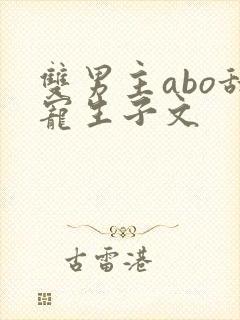 雙男主abo甜
寵生子文
古雷港